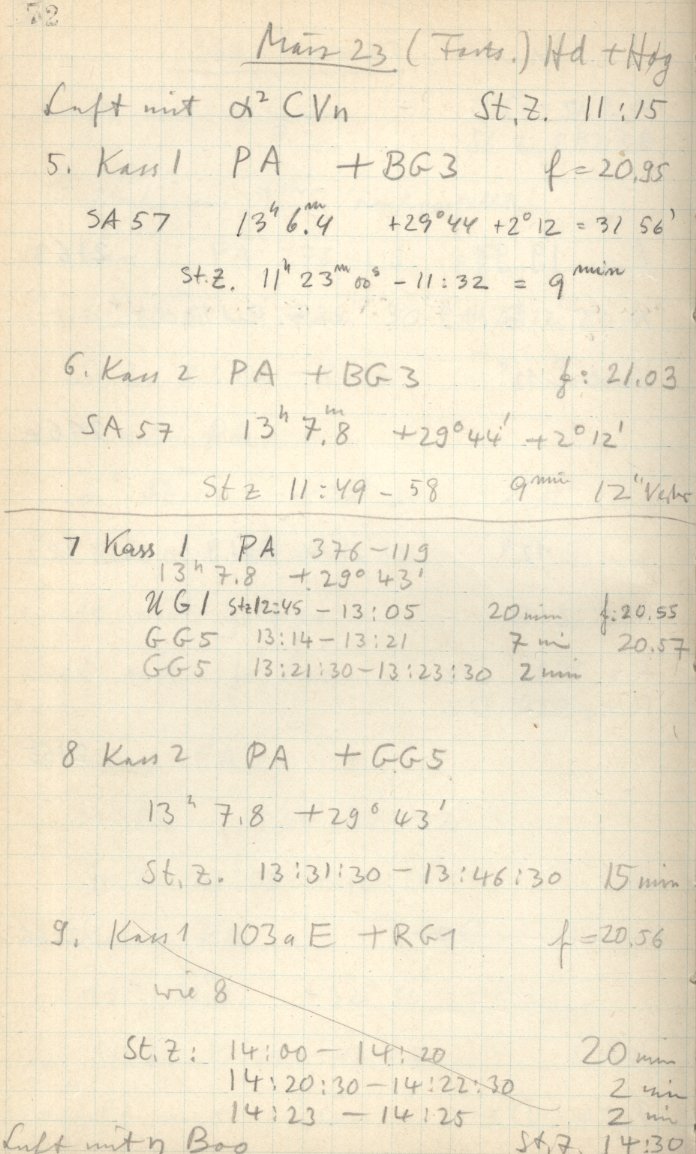 72
März 23 (Forts.) Hd + Hog
Luft mit α² CVn St.Z. 11:15
5. Kass 1 PA + BG3 f = 20.95
SA 57 13ʰ 6.ᵐ4 +29°44 +2°12 = 31 56'
St.Z. 11ʰ 23ᵐ 00ˢ - 11:32 = 9 ᵐⁱⁿ
6. Kass 2 PA + BG3 f: 21.03
SA 57 13ʰ 7.ᵐ8 +29°44' +2°12'
St Z 11:49 - 58 9ᵐⁱⁿ 12"
7 Kass 1 PA 376-119
13ʰ 7.8 +29° 43'
UG1 StZ 12:45 - 13:05 20 min f: 20.55
GG5 13:14 - 13:21 7 mi 20.57
GG5 13:21:30 - 13:23:30 2 min
8 Kass 2 PA + GG5
13ʰ 7.8 +29° 43'
St.Z. 13:31:30 - 13:46:30 15 min
9. Kass 1 103a E + RG1 f = 20.56
wie 8
St.Z: 14:00 - 14:20 20 min
14:20:30 - 14:22:30 2 min
14:23 - 14:25 2 min
Luft mit η Boo St.Z. 14:30